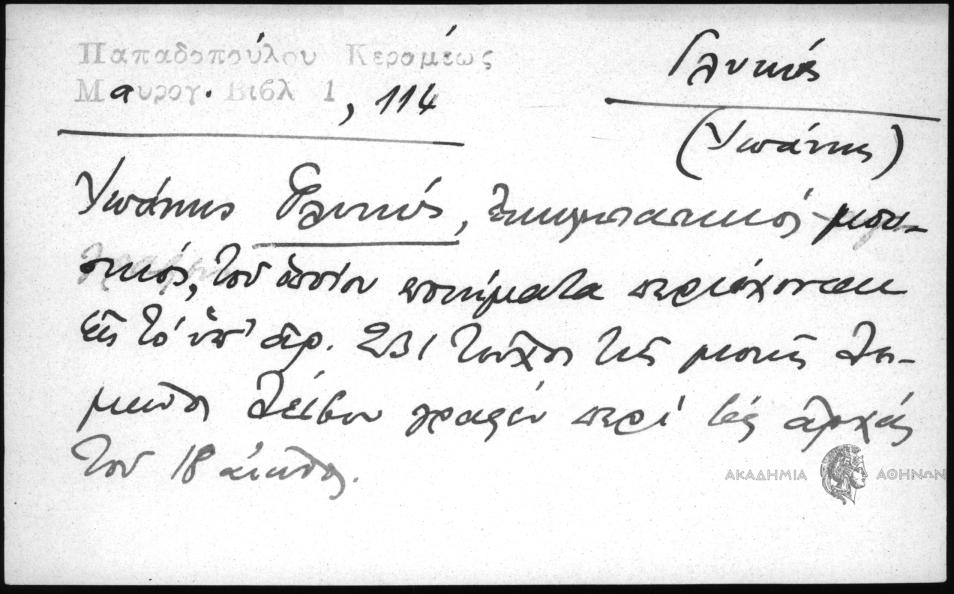 Παπαδοπούλου Κεραμέως
Μαυρογ. Βιβλ 1, 114
Γλυκύς
(Ἰωάννης)
Ἰωάννης Γλυκύς, ἐκκλησιαστικός μου-
σικός, τοῦ ὁποίου ποιήματα περιέχονται
εἰς τό ὑπ' ἀρ. 231 τεῦχος τῆς μονῆς Λει-
μῶνος Λέσβου γραφέν περί τάς ἀρχάς
τοῦ 18 αἰῶνος.
ΑΚΑΔΗΜΙΑ ΑΘΗΝΩΝ